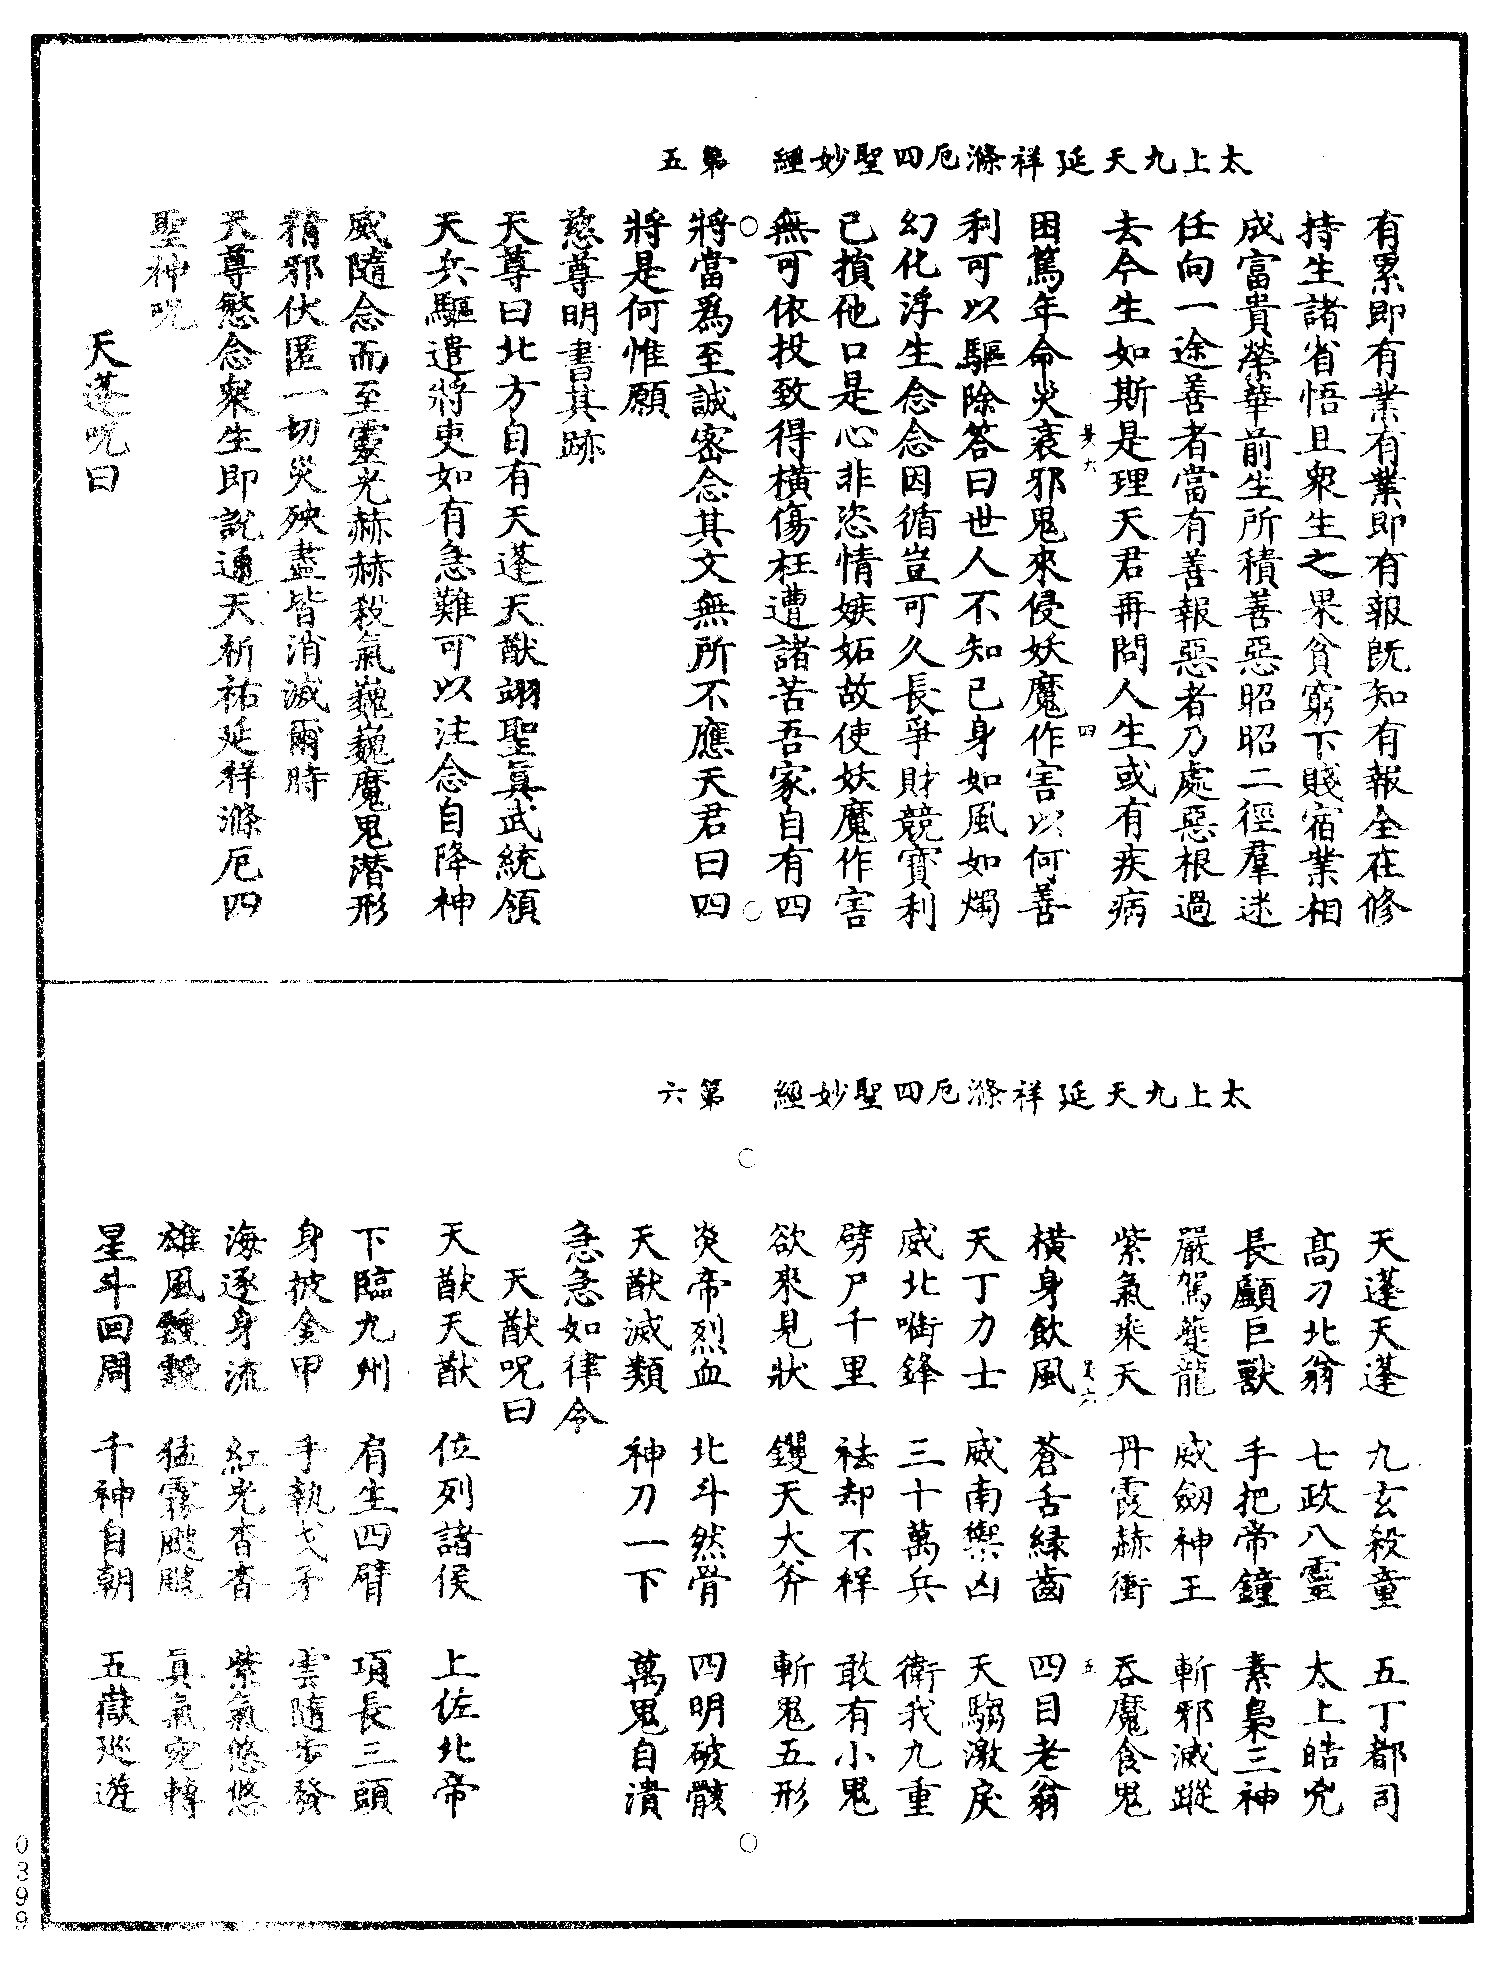 太上九天延祥滌厄四聖妙經　第五
有累即有業有業即有報既知有報全在修
持生諸省悟且衆生之果貧窮下賤宿業相
成富貴榮華前生所積善惡昭昭二徑羣迷
任向一途善者當有善報惡者乃處惡根過
去今生如斯是理天君再問人生或有疾病
四
困篤年命災衰邪鬼來侵妖魔作害以何善
利可以驅除答曰世人不知己身如風如燭
幻化浮生念念因循豈可久長爭財競寶利
己損他口是心非恣情嫉妬故使妖魔作害
無可依投致得橫傷枉遭諸苦吾家自有四
將當爲至誠密念其文無所不應天君曰四
將是何惟願
慈尊明書其跡
天尊曰北方自有天蓬天猷翊聖眞武統領
天兵驅遣將吏如有急難可以注念自降神
威隨念而至靈光赫赫殺氣巍巍魔鬼潛形
精邪伏匿一切災殃盡皆消滅爾時
天尊愍念衆生即說通天祈祐延祥滌厄四
聖神呪
天蓬呪曰
太上九天延祥滌厄四聖妙經　第六
天蓬天蓬　九玄殺童　五丁都司
高刁北翁　七政八靈　太上皓兇
長顱巨獸　手把帝鐘　素梟三神
嚴駕夔龍　威劒神王　斬邪滅蹤
紫氣乘天　丹霞赫衝　吞魔食鬼
五
橫身飲風　蒼舌緑齒　四目老翁
天丁力士　威南禦凶　天騶激戾
威北啣鋒　三十萬兵　衛我九重
劈尸千里　袪却不祥　敢有小鬼
欲來見狀　钁天大斧　斬鬼五形
炎帝烈血　北斗然骨　四明破骸
天猷滅類　神刀一下　萬鬼自潰
急急如律令
天猷呪曰
天猷天猷　位列諸侯　上佐北帝
下臨九州　肩生四臂　項長三頭
身披金甲　手執戈矛　雲隨步發
海逐身流　紅光杳杳　紫氣悠悠
雄風靉靉　猛霧颼颼　眞氣宛轉
星斗回周　千神自朝　五嶽巡遊
0399